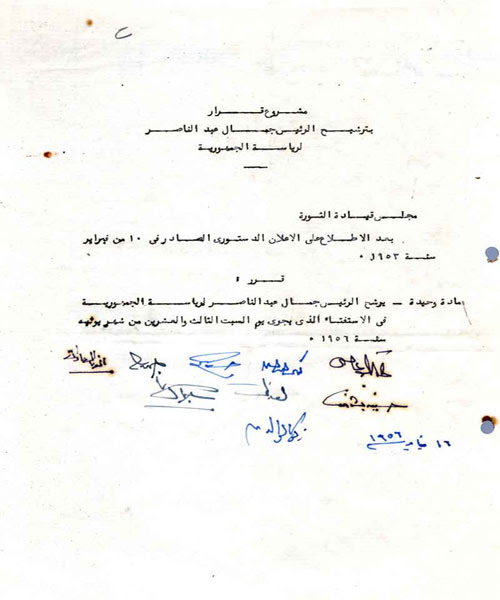 مشروع قرار
بترشيح الرئيس جمال عبد الناصر
لرياسة الجمهورية
مجلس قيادة الثورة
بعد الاطلاع على الاعلان الدستورى الصادر فى ١٠ من فبراير
سنة ١٩٥٣ ٠
قرر :
مادة وحيدة - يرشح الرئيس جمال عبد الناصر لرياسة الجمهورية
فى الاستفتاء الذى يجرى يوم السبت الثالث والعشرين من شهر يونيه
سنة ١٩٥٦ ٠
زكريا محيى الدين
١٦ يناير ١٩٥٦